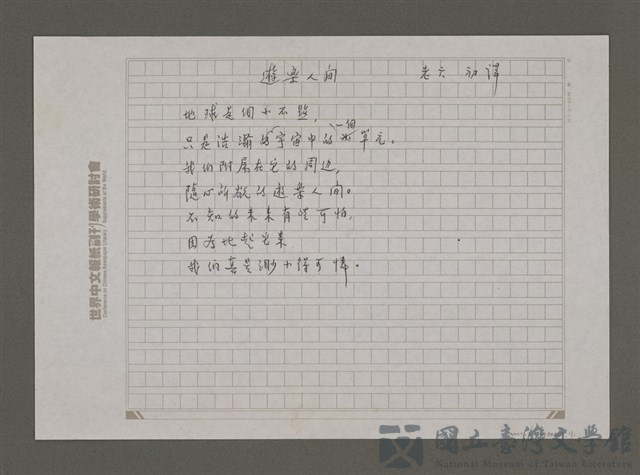 遊樂人间 老六 初譯
地球是個小不點，
只是浩瀚的宇宙中的一個單元。
我们附属在它的周边，
隨心所欲的遊樂人间。
不知的未来有些可怕，
因为比起它来
我们真是渺小得可憐。
世界中文報紙副刊學術研討會
Conference on Chinese Newspaper Literary Supplements of the World
國立臺灣文學館
National Museum of Taiwan Literature